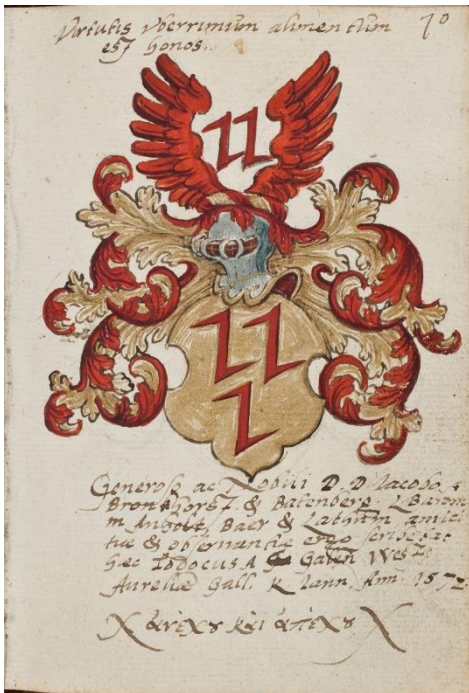 Virtutis vberrimum alimentum 70
est honos.
Generoso ac Nobili D. D. Iacobo
Bronkhorst & Batenberg. L. Baroni
in Anholt, Baer & Lathum amici
tiae & obseruantiae ergo scribebat
haec Iodocus A Galen West
Aureliae Gall. K. Iann. Ann. 1572
ἀνέχου και ἀπέχου